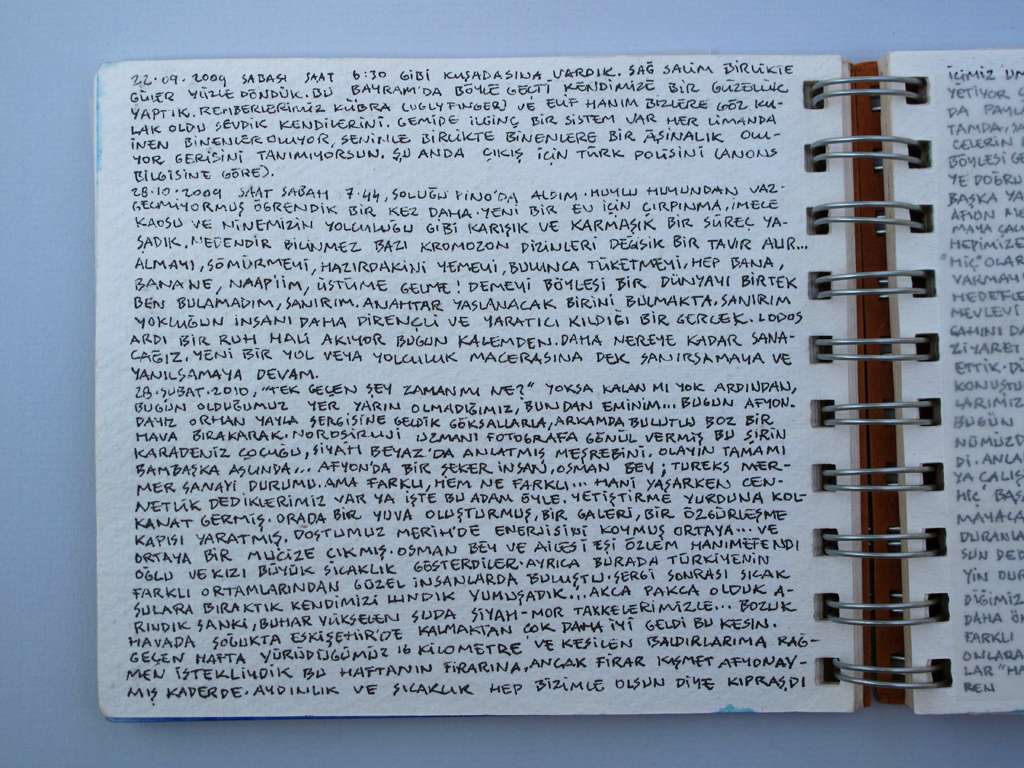 22.09.2009 SABASI SAAT 6:30 GİBİ KUŞADASINA VARDIK. SAĞ SALİM BİRLİKTE
GÜLER YÜZLE DÖNDÜK. BU BAYRAM'DA BÖYLE GEÇTİ KENDİMİZE BİR GÜZELLİK
YAPTIK. REHBERLERİMİZ KÜBRA (UGLYFINGER) VE ELİF HANIM BİZLERE GÖZ KU-
LAK OLDU SEVDİK KENDİLERİNİ. GEMİDE İLGİNÇ BİR SİSTEM VAR HER LİMANDA
İNEN BİNENLER OLUYOR, SENİNLE BİRLİKTE BİNENLERE BİR AŞİNALIK OLU-
YOR GERİSİNİ TANIMIYORSUN. ŞU ANDA ÇIKIŞ İÇİN TÜRK POLİSİNİ (ANONS
BİLGİSİNE GÖRE).
28.10.2009 SAAT SABAH 7.44, SOLUĞU PINO'DA ALDIM. HUYLU HUYUNDAN VAZ-
GEÇMİYORMUŞ ÖĞRENDİK BİR KEZ DAHA. YENİ BİR EV İÇİN ÇIRPINMA, İMECE
KAOSU VE NİNEMİZİN YOLCULUĞU GİBİ KARIŞIK VE KARMAŞIK BİR SÜREÇ YA-
ŞADIK. NEDENDİR BİLİNMEZ BAZI KROMOZON DİZİNLERİ DEĞİŞİK BİR TAVIR ALIR...
ALMAYI, SÖMÜRMEYİ, HAZIRDAKİNİ YEMEYİ, BULUNCA TÜKETMEYİ. HEP BANA,
BANANE, NAAPİİM, ÜSTÜME GELME! DEMEYİ BÖYLESİ BİR DÜNYAYI BİRTEK
BEN BULAMADIM, SANIRIM. ANAHTAR YASLANACAK BİRİNİ BULMAKTA. SANIRIM
YOKLUĞUN İNSANI DAHA DİRENÇLİ VE YARATICI KILDIĞI BİR GERÇEK. LODOS
ARDI BİR RUH HALİ AKIYOR BUGÜN KALEMDEN. DAHA NEREYE KADAR SANA-
CAĞIZ. YENİ BİR YOL VEYA YOLCULUK MACERASINA DEK SANIRSAMAYA VE
YANILSAMAYA DEVAM.
28.ŞUBAT.2010, "TEK GEÇEN ŞEY ZAMANMI NE?" YOKSA KALAN MI YOK ARDINDAN,
BUGÜN OLDUĞUMUZ YER YARIN OLMADIĞIMIZ, BUNDAN EMİNİM... BUGÜN AFYON-
DAYIZ ORHAN YAYLA SERGİSİNE GELDİK GÖKSALLARLA, ARKAMDA BULUTLU BOZ BİR
HAVA BIRAKARAK. UZMANI FOTOĞRAFA GÖNÜL VERMİŞ BU ŞİRİN
KARADENİZ ÇOCUĞU, SİYAH BEYAZ'DA ANLATMIŞ MEŞREBİNİ. OLAYIN TAMAMI
BAMBAŞKA ASLINDA... AFYON'DA BİR ŞEKER İNSAN, OSMAN BEY; TUREKS MER-
MER SANAYİ DURUMU. AMA FARKLI, HEM NE FARKLI... HANİ YAŞARKEN CEN-
NETLİK DEDİKLERİMİZ VAR YA İŞTE BU ADAM ÖYLE. YETİŞTİRME YURDUNA KOL
KANAT GERMİŞ. ORADA BİR YUVA OLUŞTURMUŞ, BİR GALERİ, BİR ÖZGÜRLEŞME
KAPISI YARATMIŞ. DOSTUMUZ MERİH'DE ENERJİSİNİ KOYMUŞ ORTAYA... VE
ORTAYA BİR MUCİZE ÇIKMIŞ. OSMAN BEY VE AİLESİ EŞİ ÖZLEM HANIMEFENDİ
OĞLU VE KIZI BÜYÜK SICAKLIK GÖSTERDİLER. AYRICA BURADA TÜRKİYENİN
FARKLI ORTAMLARINDAN GÜZEL İNSANLARDA BULUŞTU. SERGİ SONRASI SICAK
SULARA BIRAKTIK KENDİMİZİ ILINDIK YUMUŞADIK... AKÇA PAKÇA OLDUK A-
RINDIK SANKİ, BUHAR YÜKSELEN SUDA SİYAH-MOR TAKKELERİMİZLE... BOZUK
HAVADA SOĞUKTA ESKİŞEHİR'DE KALMAKTAN ÇOK DAHA İYİ GELDİ BU KESİN.
GEÇEN HAFTA YÜRÜDÜĞÜMÜZ 16 KİLOMETRE VE KESİLEN BALDIRLARIMA RAĞ-
MEN İSTEKLİYDİK BU HAFTANIN FİRARINA, ANCAK FİRAR KISMET AFYONAY-
MIŞ KADERDE. AYDINLIK VE SICAKLIK HEP BİZİMLE OLSUN DİYE KIPRAŞDI
İÇİMİZ
YETİYOR
DA
TAMDA,
CELERİN
BÖYLESİ
YE DOĞRU
BAŞKA
AFYON
MAYA
HEPİMİZE
"HİÇ" OLAR
VARMAY
HEDEFLE
MEVLEVİ
ZİYARET
ETTİK.
KONUŞTU
LARIMIZ
BUGÜN
NÜMÜZD
Dİ. ANLA
YA ÇALIŞ
HİÇ BAŞ
MAYACA
DURANLA
SUN DED
YİN DUR
DİĞİMİZ
DAHA
FARKLI
ONLARA
LAR
REN